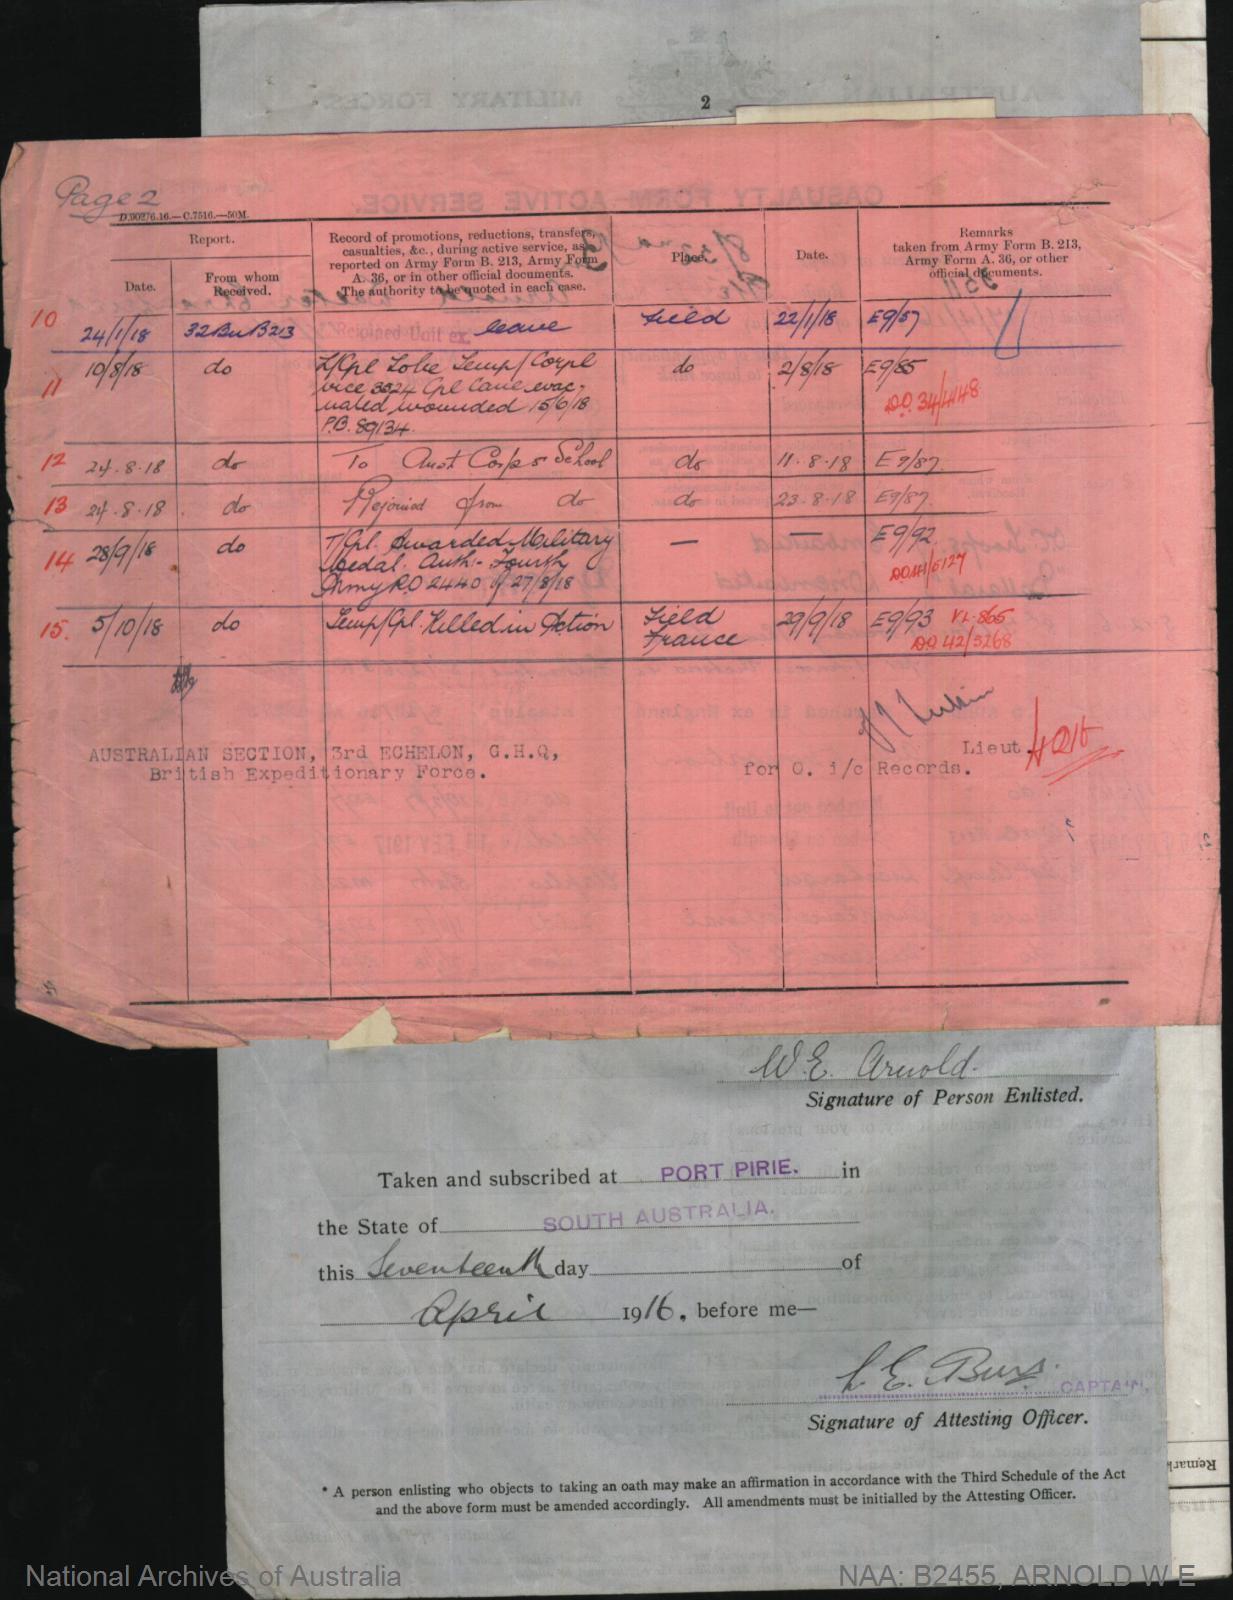 2
Page 2
D.90276.16.—C.7516.—50M.
Report.
Date.
From whom
Received.
Record of promotions, reductions, transfers,
casualties, &c., during active service, as
reported on Army Form B. 213, Army Form
A. 36, or in other official documents.
The authority to be quoted in each case.
Place.
Date.
Remarks
taken from Army Form B. 213,
Army Form A. 36, or other
official documents.
10 24/1/18 32Bn B213 Rejoined Unit ex. leave Field 22/1/18 E9/57
11 10/8/18 do L/Cpl To be Temp/Corpl do 2/8/18 E9/85
vice 3324 Cpl Cane evac-
uated wounded 15/6/18
P.B. 89134.
D.O. 34/4448
12 24.8.18 do To Aust Corps School do 11.8.18 E9/87.
13 24.8.18 do Rejoined from do do 23.8.18 E9/87.
14 28/9/18 do T/Cpl. Awarded Military — — E9/92.
Medal. Auth:- Fourth
Army R.O 2440 of 27/8/18
DO41/5127
15. 5/10/18 do Temp/Cpl. Killed in Action Field France 29/9/18 E9/93 VL.865
D.O. 42/5268
Lieut.
AUSTRALIAN SECTION, 3rd ECHELON, G.H.Q,
British Expeditionary Force.
for O. i/c Records.
W. E. Arnold.
Signature of Person Enlisted.
Taken and subscribed at PORT PIRIE. in
the State of SOUTH AUSTRALIA.
this Seventeenth day of
April 1916, before me—
CAPTAIN.
Signature of Attesting Officer.
* A person enlisting who objects to taking an oath may make an affirmation in accordance with the Third Schedule of the Act
and the above form must be amended accordingly. All amendments must be initialled by the Attesting Officer.
National Archives of Australia
NAA: B2455, ARNOLD W E